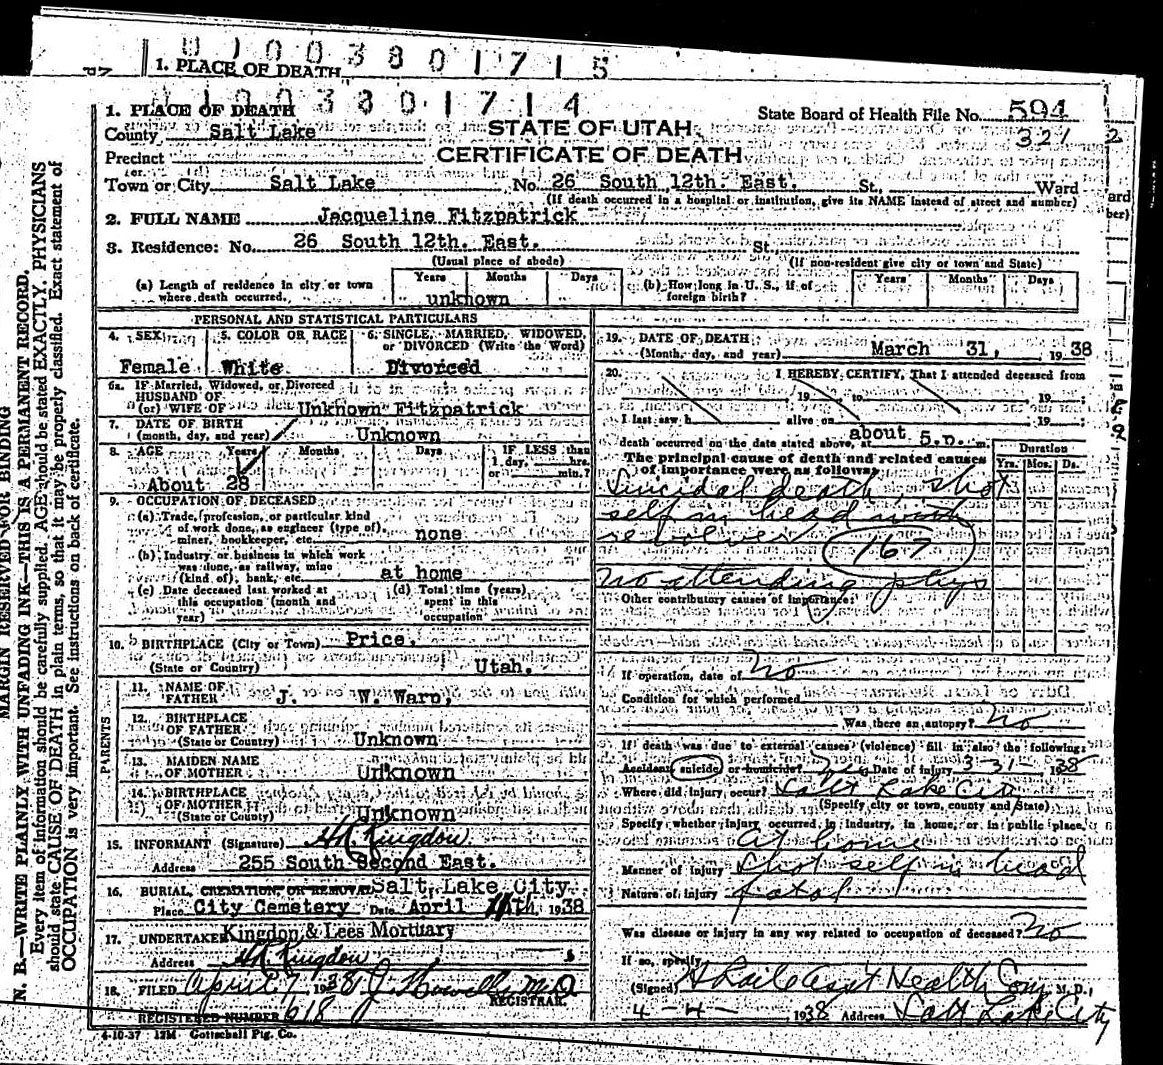 U 1 0 0 3 8 0 1 7 1 5
1. PLACE OF DEATH
1 0 0 3 8 0 1 7 1 4
1. PLACE OF DEATH
State Board of Health File No. 594
321
County Salt Lake
STATE OF UTAH
Precinct
CERTIFICATE OF DEATH
Town or City Salt Lake No. 26 South 12th. East. St. Ward
(If death occurred in a hospital or institution, give its NAME instead of street and number)
2. FULL NAME Jacqueline Fitzpatrick
3. Residence: No. 26 South 12th. East. St.
(Usual place of abode) (If non-resident give city or town and State)
(a) Length of residence in city or town where death occurred. Years Months Days
unknown
(b) How long in U. S., if of foreign birth? Years Months Days
PERSONAL AND STATISTICAL PARTICULARS
4. SEX 5. COLOR OR RACE 6. SINGLE, MARRIED, WIDOWED, or DIVORCED (Write the Word)
Female White Divorced
6a. IF Married, Widowed, or Divorced
HUSBAND OF
(or) WIFE OF Unknown Fitzpatrick
7. DATE OF BIRTH
(month, day, and year) Unknown
8. AGE Years Months Days IF LESS than
1 day, hrs.
or min.?
About 28
9. OCCUPATION OF DECEASED
(a) Trade, profession, or particular kind
of work done, as engineer (type of),
miner, bookkeeper, etc. none
(b) Industry or business in which work
was done, as railway, mine
(kind of), bank, etc. at home
(c) Date deceased last worked at
this occupation (month and
year)
(d) Total time (years)
spent in this
occupation
10. BIRTHPLACE (City or Town) Price.
(State or Country) Utah.
PARENTS
11. NAME OF
FATHER J. W. Warp,
12. BIRTHPLACE
OF FATHER
(State or Country) Unknown
13. MAIDEN NAME
OF MOTHER Unknown
14. BIRTHPLACE
OF MOTHER
(State or Country) Unknown
15. INFORMANT (Signature) Kingdon
Address 255 South Second East.
16. BURIAL, CREMATION, OR REMOVAL Salt Lake City.
Place City Cemetery Date April 1938
17. UNDERTAKER Kingdon & Lees Mortuary
Address Kingdon
18. FILED April 7 1938 M.D.
REGISTRAR.
REGISTERED NUMBER 618
4-10-37 12M Gottschall Ptg. Co.
19. DATE OF DEATH
(Month, day, and year) March 31, 1938
20. I HEREBY CERTIFY, That I attended deceased from
, 19 to , 19 ;
I last saw h alive on , 19 ;
death occurred on the date stated above, at about 5.p. m.
The principal cause of death and related causes
of importance were as follows:
Duration
Yrs. Mos. Ds.
Suicidal death, shot
self in head with
revolver 167
No attending phys
Other contributory causes of importance:
If operation, date of No
Condition for which performed
Was there an autopsy? No
If death was due to external causes (violence) fill in also the following:
Accident, suicide or homicide? yes Date of injury 3-31- 1938
Where did injury occur? Salt Lake City
(Specify city or town, county and State)
Specify whether injury occurred in industry, in home, or in public place.
At home
Manner of injury Shot self in head
Nature of injury fatal
Was disease or injury in any way related to occupation of deceased? No
If so, specify
(Signed) Asst Health Com, M. D.,
4-4-, 1938 Address Salt Lake City
MARGIN RESERVED FOR BINDING
N. B.—WRITE PLAINLY WITH UNFADING INK—THIS IS A PERMANENT RECORD.
Every item of information should be carefully supplied. AGE should be stated EXACTLY. PHYSICIANS
should state CAUSE OF DEATH in plain terms, so that it may be properly classified. Exact statement of
OCCUPATION is very important. See instructions on back of certificate.